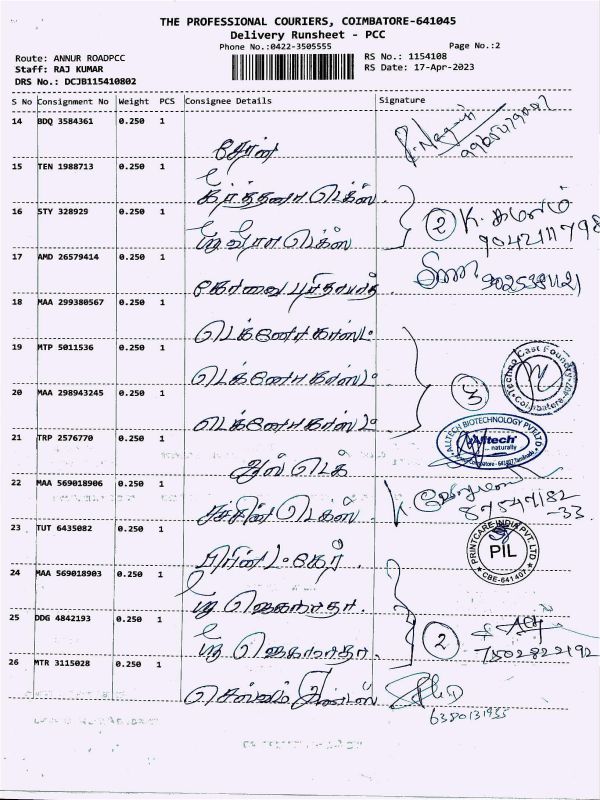 THE PROFESSIONAL COURIERS, COIMBATORE-641045
Delivery Runsheet - PCC
Phone No.:0422-3505555
Page No.:2
Route: ANNUR ROADPCC
RS No.: 1154108
Staff: RAJ KUMAR
RS Date: 17-Apr-2023
DRS No.: DCJB115410802
S No Consignment No Weight PCS Consignee Details Signature
14 BDQ 3584361 0.250 1
சேரன்
15 TEN 1988713 0.250 1
கீர்த்தனா டெக்ஸ்
16 STY 328929 0.250 1
ஸ்ரீ வீரா டெக்ஸ்
② K. கமலம்
9042211798
17 AMD 26579414 0.250 1
கோவை
9025381121
18 MAA 299380567 0.250 1
டெக்னோ காஸ்ட்
19 MTP 5011536 0.250 1
டெக்னோ காஸ்ட்
③
Techno Cast Foundry
Coimbatore-407
20 MAA 298943245 0.250 1
டெக்னோ காஸ்ட்
21 TRP 2576770 0.250 1
ஆல் டெக்
ALLTECH BIOTECHNOLOGY PVT LTD
Alltech
naturally
22 MAA 569018906 0.250 1
சச்சின் டெக்ஸ்
87547182
-33
23 TUT 6435082 0.250 1
பிரின்ட் கேர்
PRINTCARE INDIA PVT. LTD
PIL
CBE-641407
24 MAA 569018903 0.250 1
ஸ்ரீ ஜெகநாதா
25 DDG 4842193 0.250 1
ஸ்ரீ ஜெகநாதா
②
7502822192
26 MTR 3115028 0.250 1
செல்வம்
6380131935